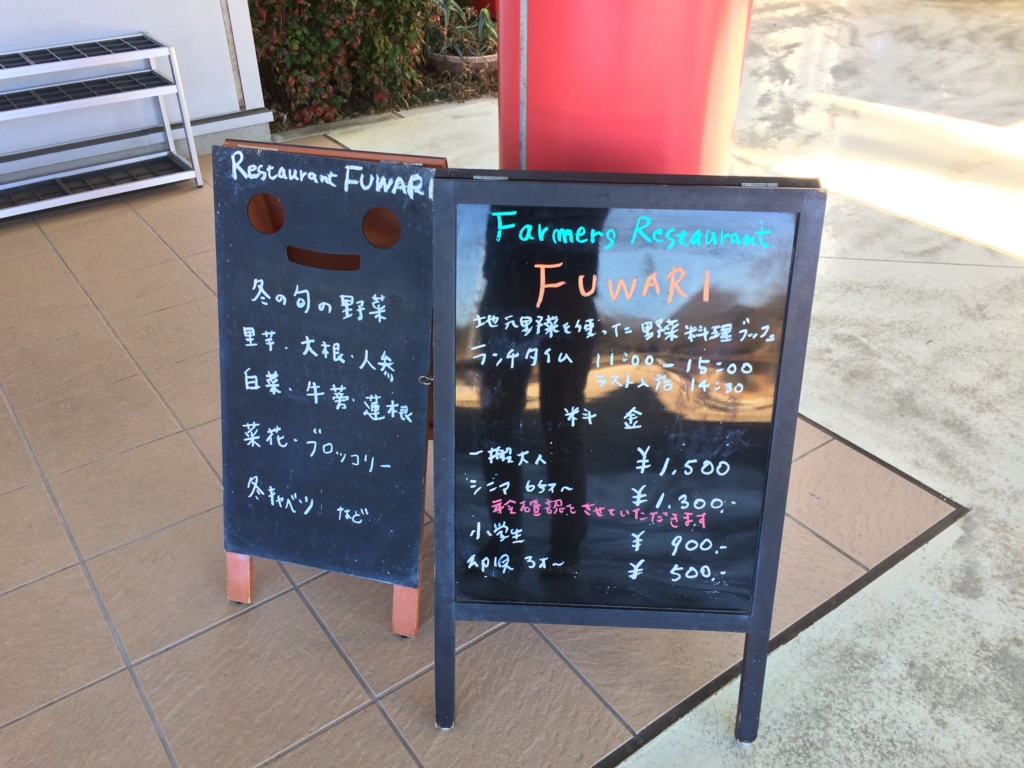 Restaurant FUWARI
冬の旬の野菜
里芋・大根・人参
白菜・牛蒡・蓮根
菜花・ブロッコリー
冬キャベツ など
Farmers Restaurant
FUWARI
地元野菜を使った野菜料理ブッフェ
ランチタイム 11:00-15:00
ラスト入店 14:30
料金
一般大人 ¥1,500
シニア 65才~ ¥1,300.-
年令確認をさせていただきます
小学生 ¥ 900.-
幼児 3才~ ¥ 500.-